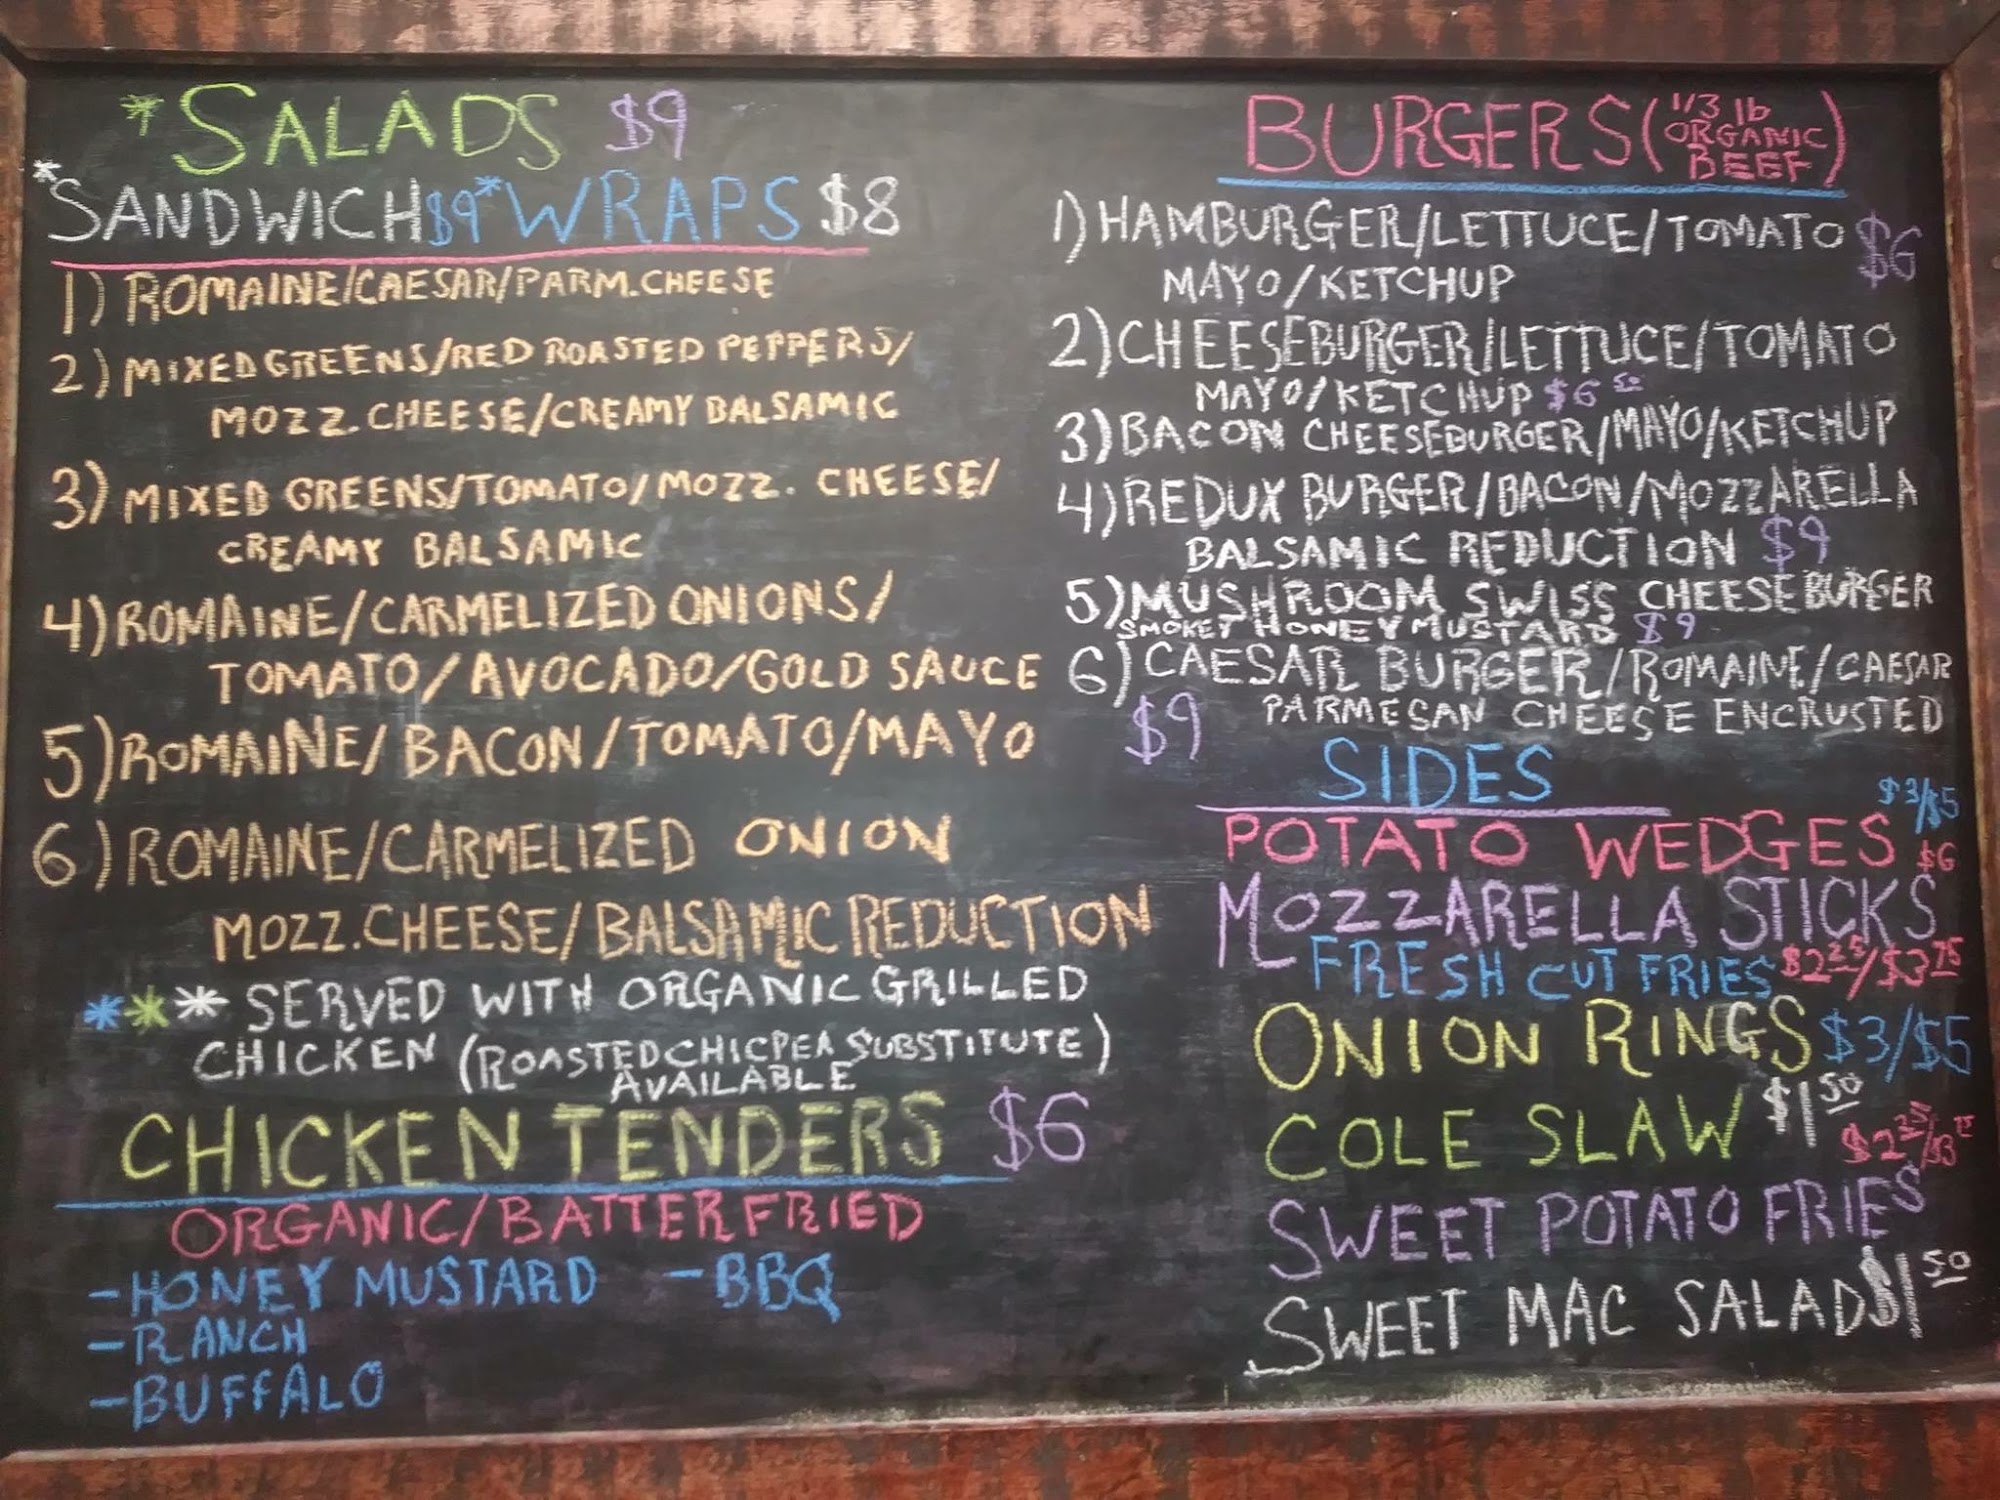 *SALADS $9
*SANDWICH $9 *WRAPS $8
1) ROMAINE/CAESAR/PARM.CHEESE
2) MIXED GREENS/RED ROASTED PEPPERS/
MOZZ.CHEESE/CREAMY BALSAMIC
3) MIXED GREENS/TOMATO/MOZZ. CHEESE/
CREAMY BALSAMIC
4) ROMAINE/CARMELIZED ONIONS/
TOMATO/AVOCADO/GOLD SAUCE
5) ROMAINE/BACON/TOMATO/MAYO
6) ROMAINE/CARMELIZED ONION
MOZZ.CHEESE/BALSAMIC REDUCTION
*** SERVED WITH ORGANIC GRILLED
CHICKEN (ROASTED CHICPEA SUBSTITUTE)
AVAILABLE
CHICKEN TENDERS $6
ORGANIC/BATTER FRIED
-HONEY MUSTARD -BBQ
-RANCH
-BUFFALO
BURGERS (1/3 lb
ORGANIC
BEEF)
1) HAMBURGER/LETTUCE/TOMATO $6
MAYO/KETCHUP
2) CHEESEBURGER/LETTUCE/TOMATO
MAYO/KETCHUP $6 50
3) BACON CHEESEBURGER/MAYO/KETCHUP
4) REDUX BURGER/BACON/MOZZARELLA
BALSAMIC REDUCTION $9
5) MUSHROOM SWISS CHEESEBURGER
SMOKEY HONEY MUSTARD $9
6) CAESAR BURGER/ROMAINE/CAESAR
$9 PARMESAN CHEESE ENCRUSTED
SIDES
$3/$5
POTATO WEDGES $6
MOZZARELLA STICKS
FRESH CUT FRIES $2 25/$3 75
ONION RINGS $3/$5
COLE SLAW $1 50
$2 25/$3 75
SWEET POTATO FRIES
SWEET MAC SALAD $1 50